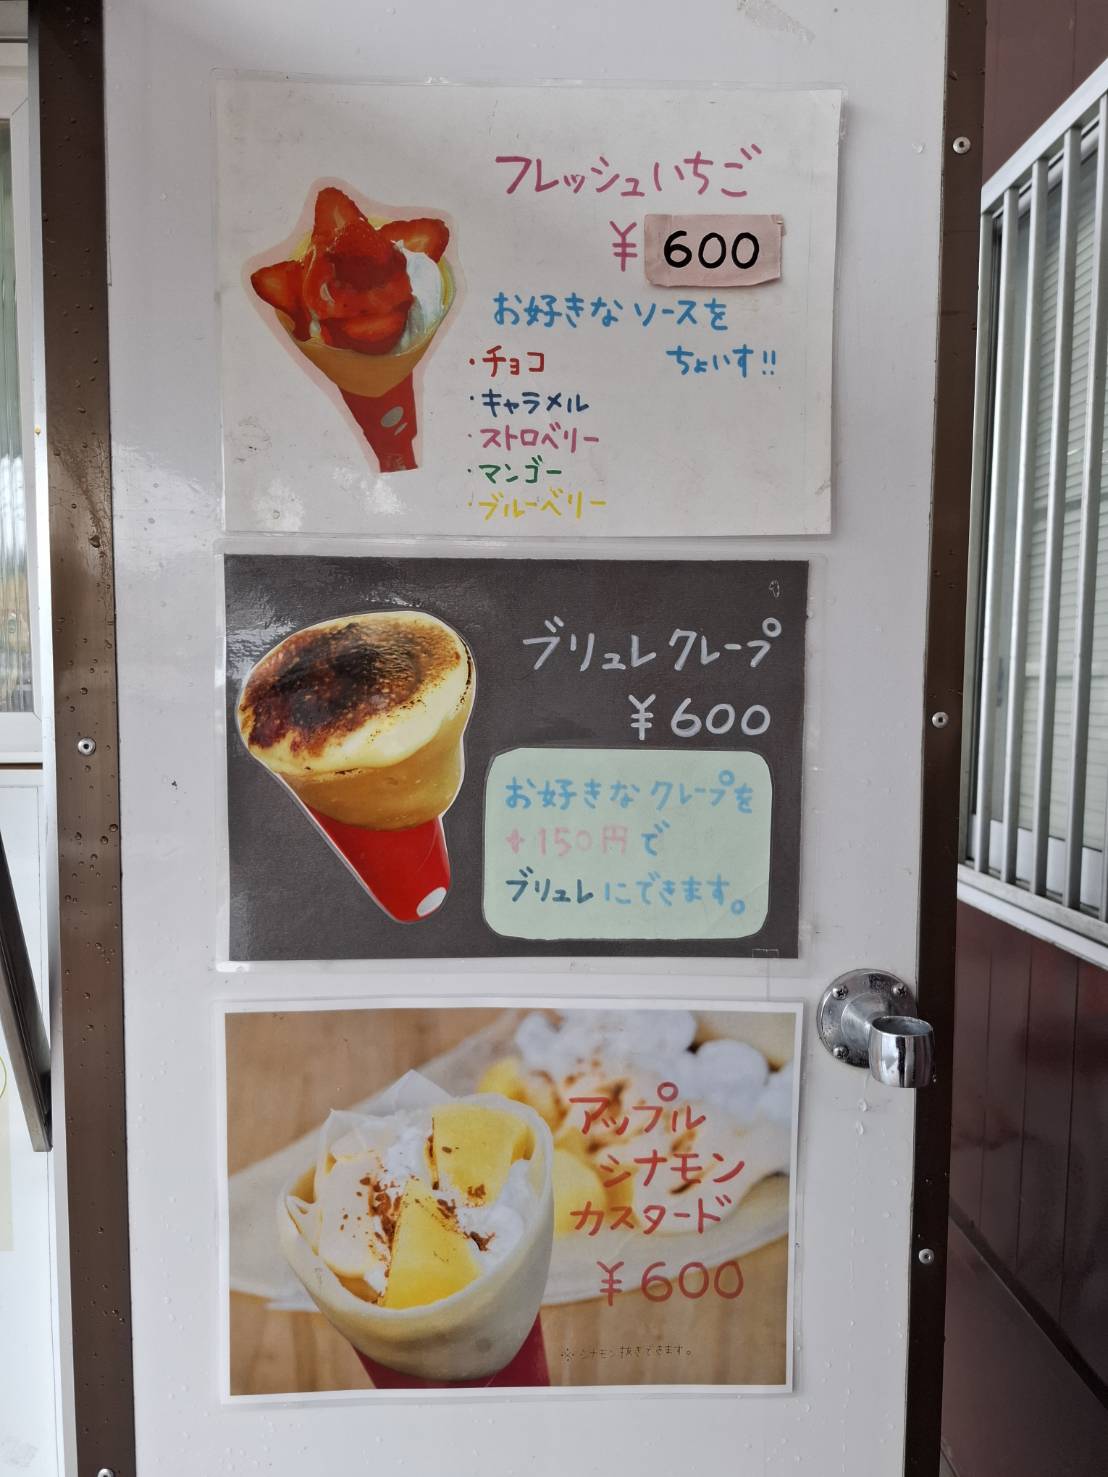 フレッシュいちご
¥600
お好きなソースを
ちょいす!!
・チョコ
・キャラメル
・ストロベリー
・マンゴー
・ブルーベリー
ブリュレクレープ
¥600
お好きなクレープを
+150円で
ブリュレにできます。
アップル
シナモン
カスタード
¥600
※シナモン抜きできます。